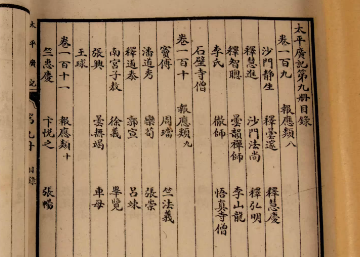 太平廣記第九册目錄
卷一百九 報應類八
沙門靜生 釋曇邃 釋慧慶
釋慧進 沙門法尚 釋弘明
釋智聰 曇韻禪師 李山龍
李氏 徹師 悟真寺僧
石壁寺僧
卷一百十 報應類九
竇傅 周璫 竺法義
潘道秀 欒荀 張崇
釋道泰 郭宣 呂竦
南宮子敖 徐義 畢覽
張興 曇無竭 車母
王球
卷一百十一 報應類十
竺惠慶 卞悅之 張暢
太平廣記
目錄